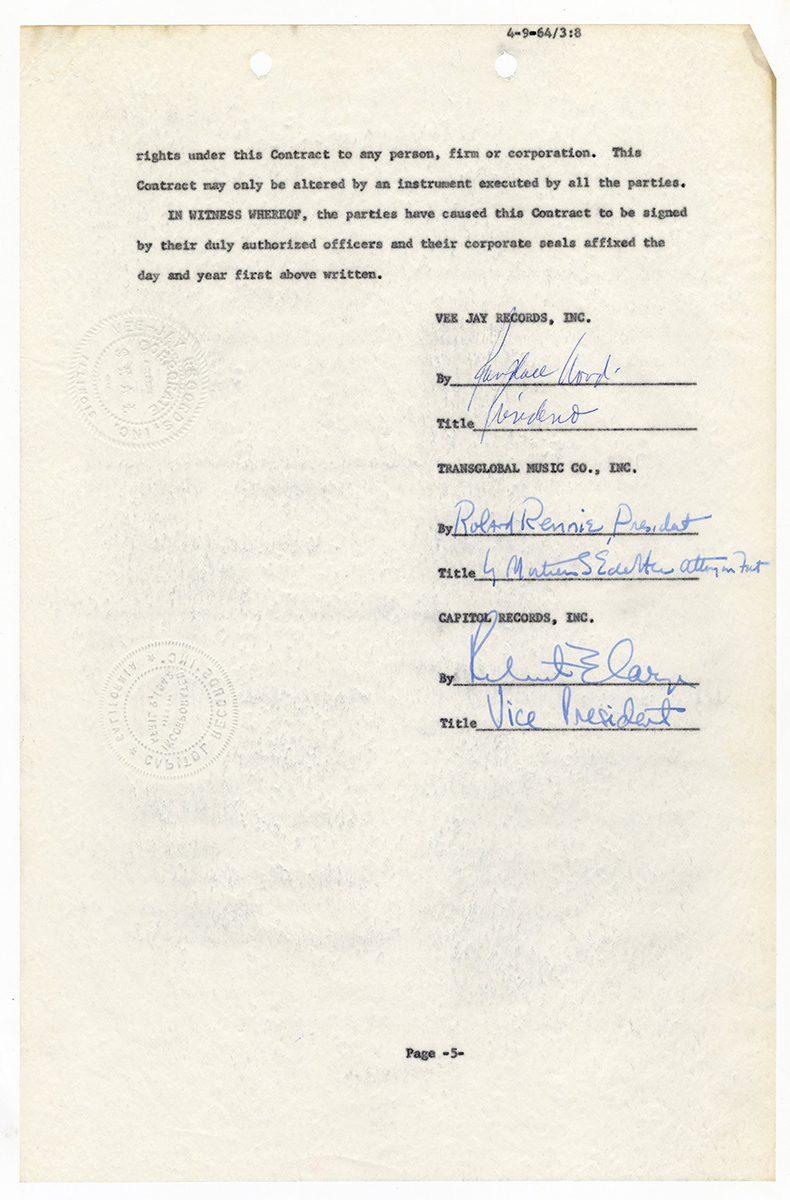 4-9-64/3:8
rights under this Contract to any person, firm or corporation. This
Contract may only be altered by an instrument executed by all the parties.
IN WITNESS WHEREOF, the parties have caused this Contract to be signed
by their duly authorized officers and their corporate seals affixed the
day and year first above written.
VEE JAY RECORDS, INC.
By
Title President
TRANSGLOBAL MUSIC CO., INC.
By Roland Rennie, President
Title by Atty in Fact
CAPITOL RECORDS, INC.
By Robert E
Title Vice President
VEE JAY RECORDS, INC.
CORPORATE
CAPITOL RECORDS, INC.
INCORPORATED
CALIFORNIA
Page -5-